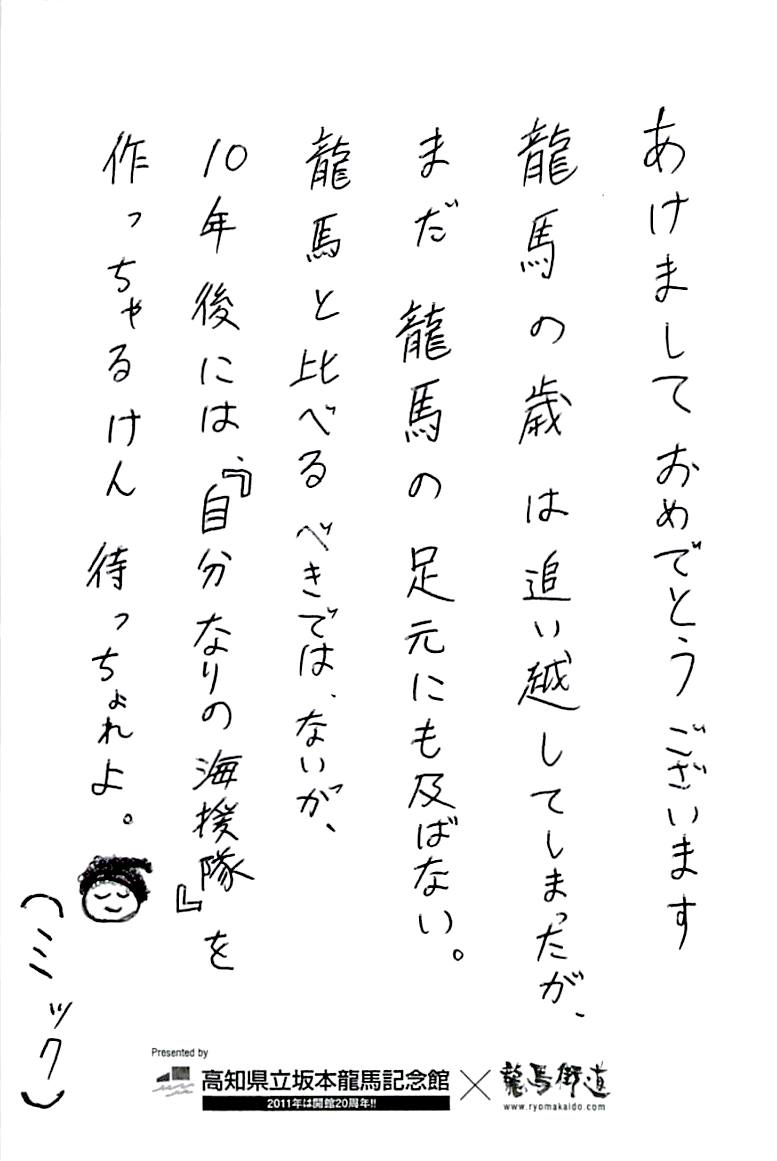 あけましておめでとうございます
龍馬の歳は追い越してしまったが、
まだ龍馬の足元にも及ばない。
龍馬と比べるべきでは、ないが、
10年後には、『自分なりの海援隊』を
作っちゃるけん待っちょれよ。
(ミック)
Presented by
高知県立坂本龍馬記念館
2011年は開館20周年!!
×
龍馬街道
www.ryomakaido.com